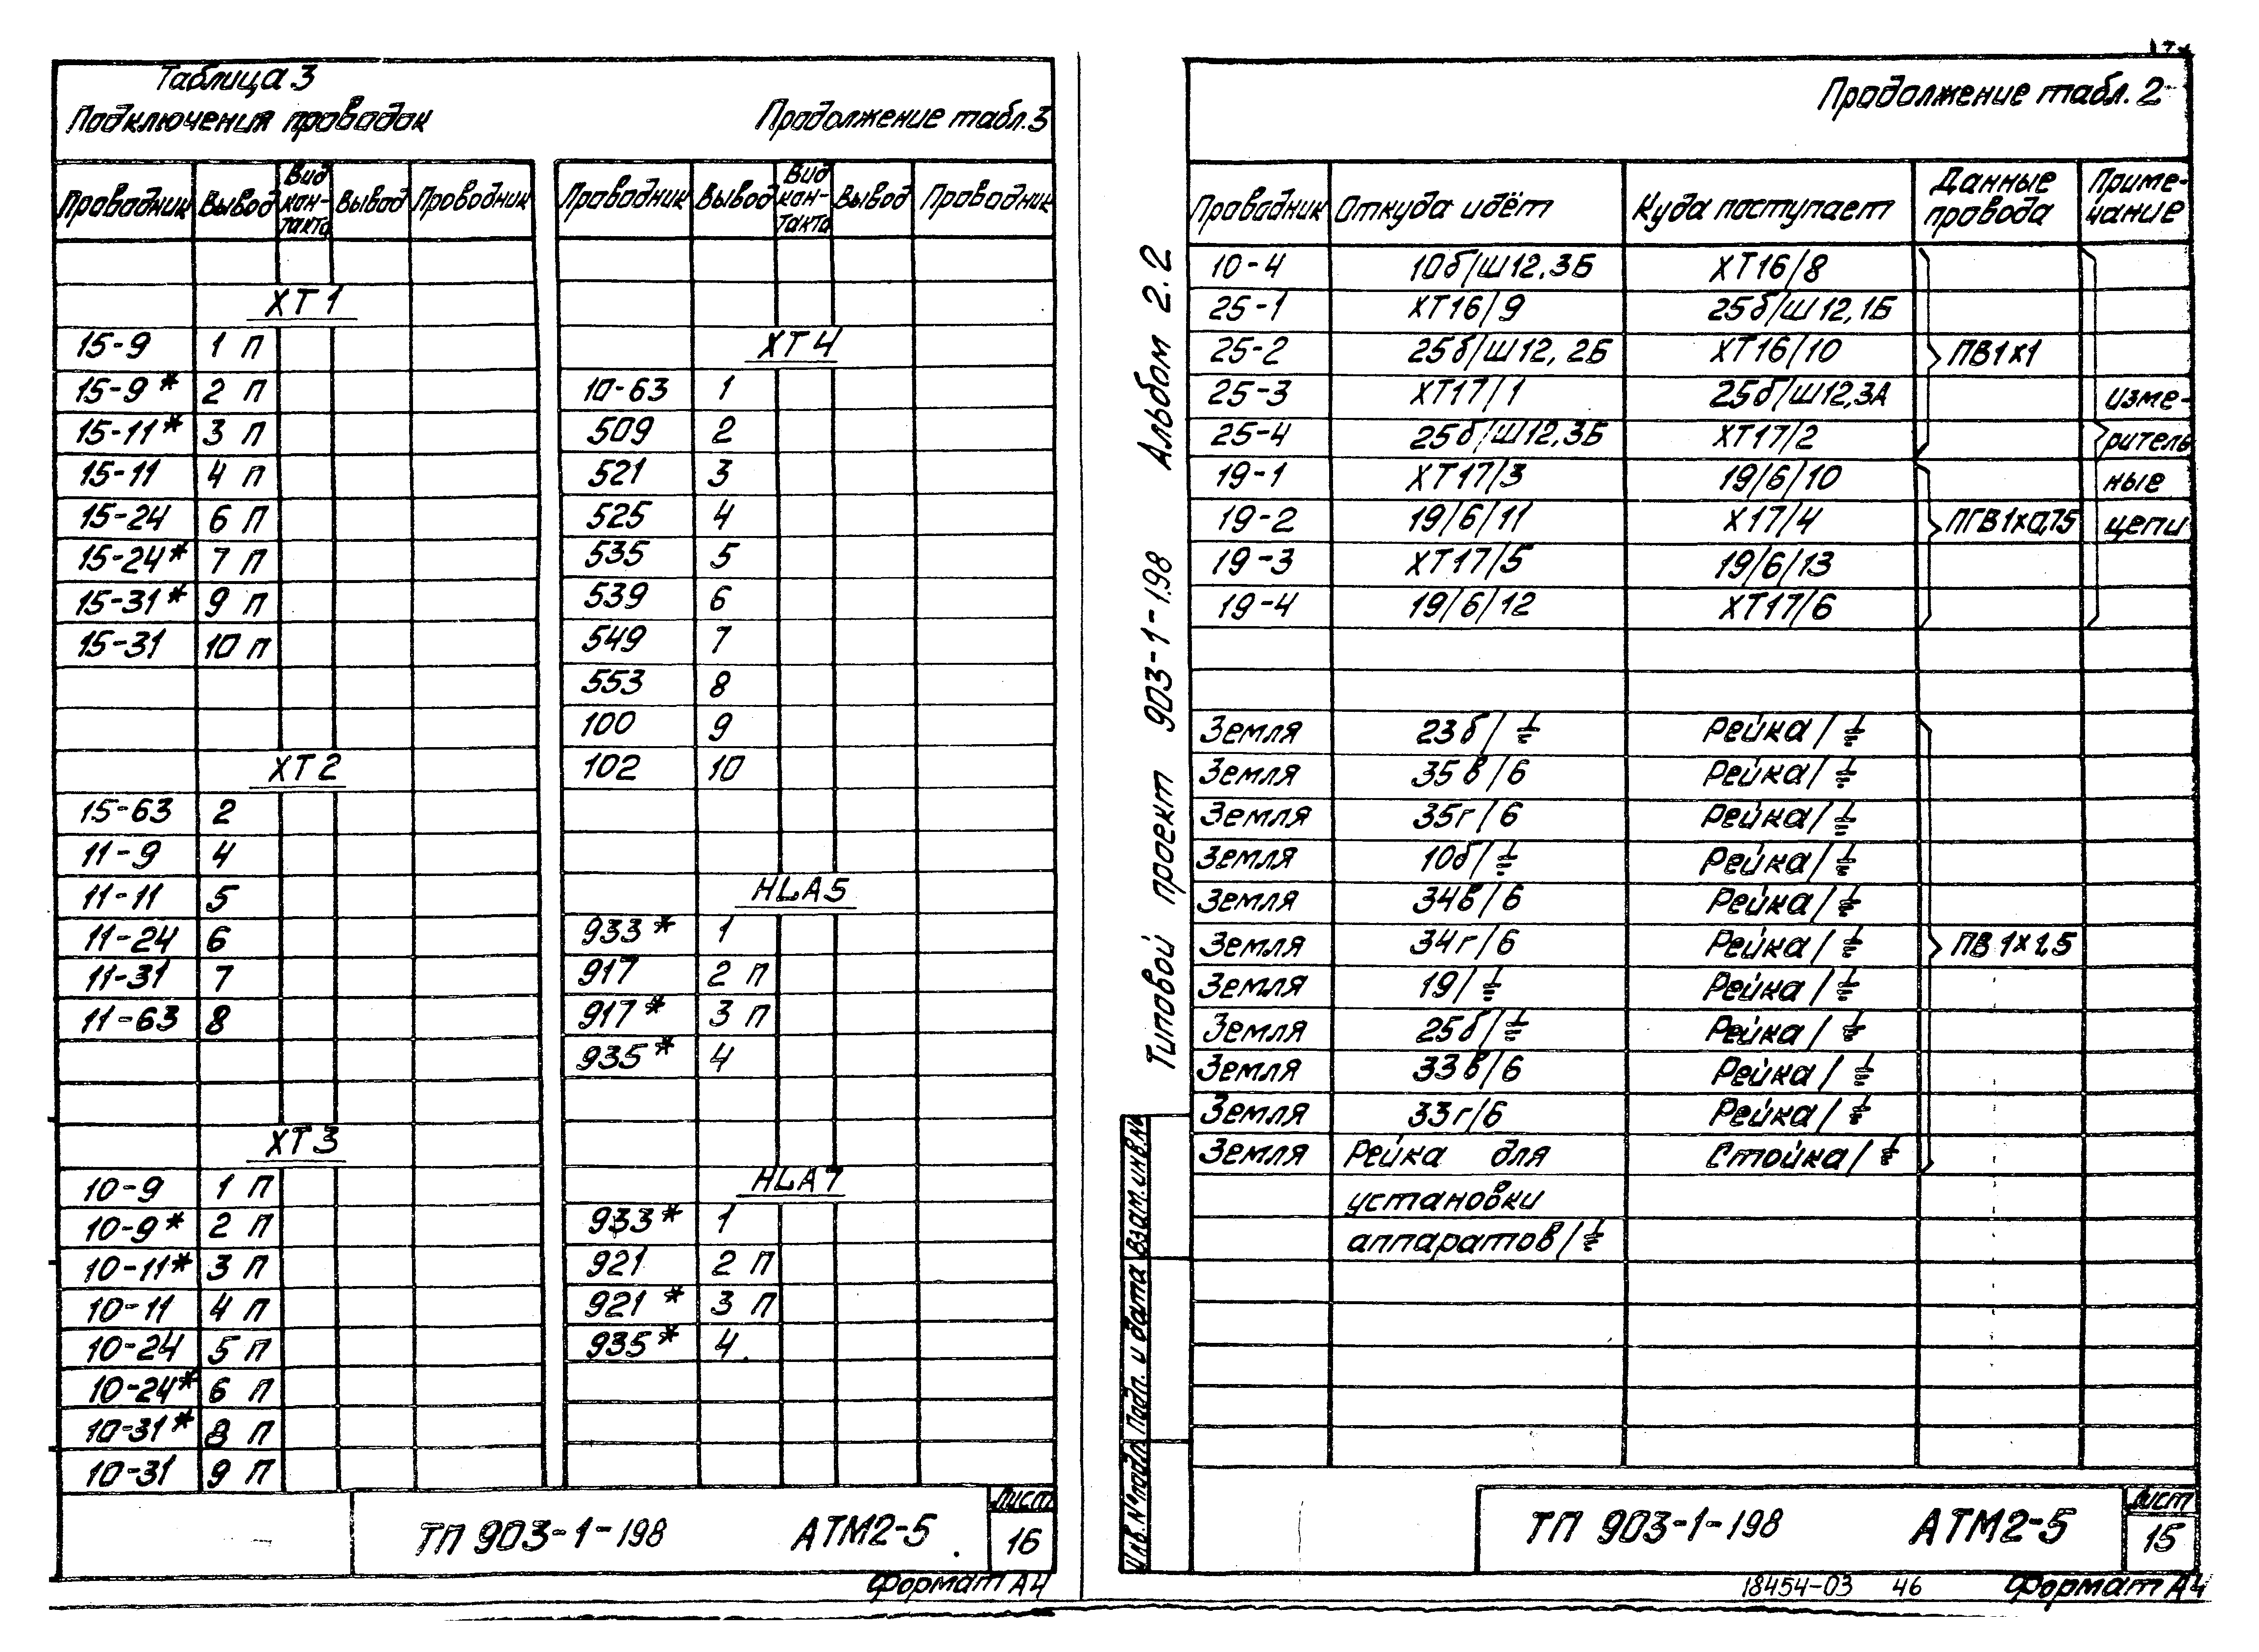 Таблица 3
Подключения проводок
Продолжение табл.3
Проводник Вывод Вид кон-такта Вывод Проводник
ХТ1
15-9 1 П
15-9* 2 П
15-11* 3 П
15-11 4 П
15-24 6 П
15-24* 7 П
15-31* 9 П
15-31 10 П
ХТ2
15-63 2
11-9 4
11-11 5
11-24 6
11-31 7
11-63 8
ХТ3
10-9 1 П
10-9* 2 П
10-11* 3 П
10-11 4 П
10-24 5 П
10-24* 6 П
10-31* 8 П
10-31 9 П
Проводник Вывод Вид кон-такта Вывод Проводник
ХТ4
10-63 1
509 2
521 3
525 4
535 5
539 6
549 7
553 8
100 9
102 10
HLA5
933* 1
917 2 П
917* 3 П
935* 4
HLA7
933* 1
921 2 П
921* 3 П
935* 4
ТП 903-1-198 АТМ2-5
Лист
16
Формат А4
Продолжение табл. 2
Проводник Откуда идёт Куда поступает Данные провода Приме-чание
10-4 10б/Ш12.3Б ХТ16/8
25-1 ХТ16/9 25б/Ш12,1Б
25-2 25б/Ш12,2Б ХТ16/10 ПВ1х1
25-3 ХТ17/1 25б/Ш12,3А Изме-
25-4 25б/Ш12,3Б ХТ17/2 ритель
19-1 ХТ17/3 19/6/10 ные
19-2 19/6/11 Х17/4 ПГВ1х0,75 цепи
19-3 ХТ17/5 19/6/13
19-4 19/6/12 ХТ17/6
Земля 23б/⏚ Рейка/⏚
Земля 35в/6 Рейка/⏚
Земля 35г/6 Рейка/⏚
Земля 10б/⏚ Рейка/⏚
Земля 34в/6 Рейка/⏚
Земля 34г/6 Рейка/⏚ ПВ 1х1,5
Земля 19/⏚ Рейка/⏚
Земля 25б/⏚ Рейка/⏚
Земля 33в/6 Рейка/⏚
Земля 33г/6 Рейка/⏚
Земля Рейка для Стойка/⏚
установки
аппаратов/⏚
Типовой проект 903-1-198 Альбом 2.2
Инв.№подл. Подп. и дата Взам.инв.№
ТП 903-1-198 АТМ2-5
Лист
15
18454-03 46 Формат А4